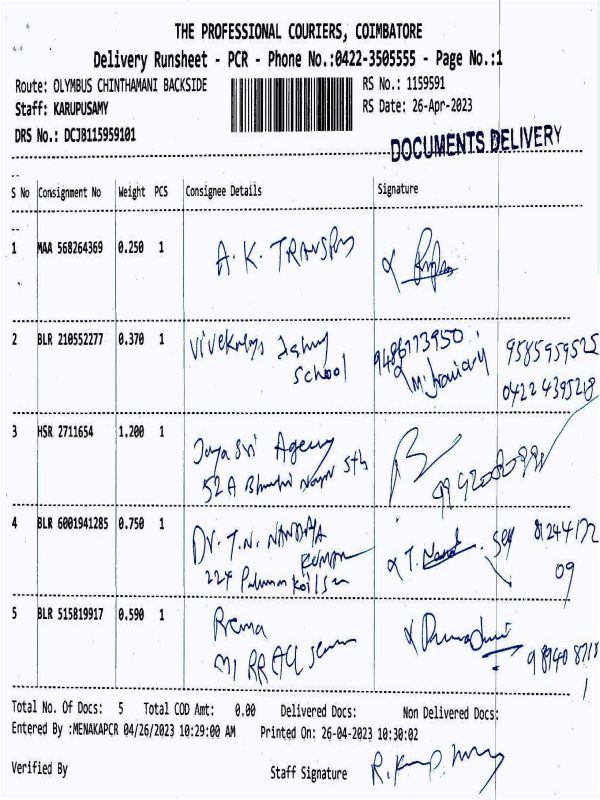 THE PROFESSIONAL COURIERS, COIMBATORE
Delivery Runsheet - PCR - Phone No.:0422-3505555 - Page No.:1
Route: OLYMBUS CHINTHAMANI BACKSIDE RS No.: 1159591
Staff: KARUPUSAMY RS Date: 26-Apr-2023
DRS No.: DCJB115959101
DOCUMENTS DELIVERY
S No Consignment No Weight PCS Consignee Details Signature
1 MAA 568264369 0.250 1 A. K. TRANSPO
2 BLR 210552277 0.370 1 School 9486773950 9585959525
04224395218
3 HSR 2711654 1.200 1 Jayasri Agency
52 A Nagar 5th
4 BLR 6001941285 0.750 1 Dr. T.N. Self 81244172
09
224
5 BLR 515819917 0.590 1 Prema
989408718
1
Total No. Of Docs: 5 Total COD Amt: 0.00 Delivered Docs: Non Delivered Docs:
Entered By :MENAKAPCR 04/26/2023 10:29:00 AM Printed On: 26-04-2023 10:30:02
Verified By Staff Signature